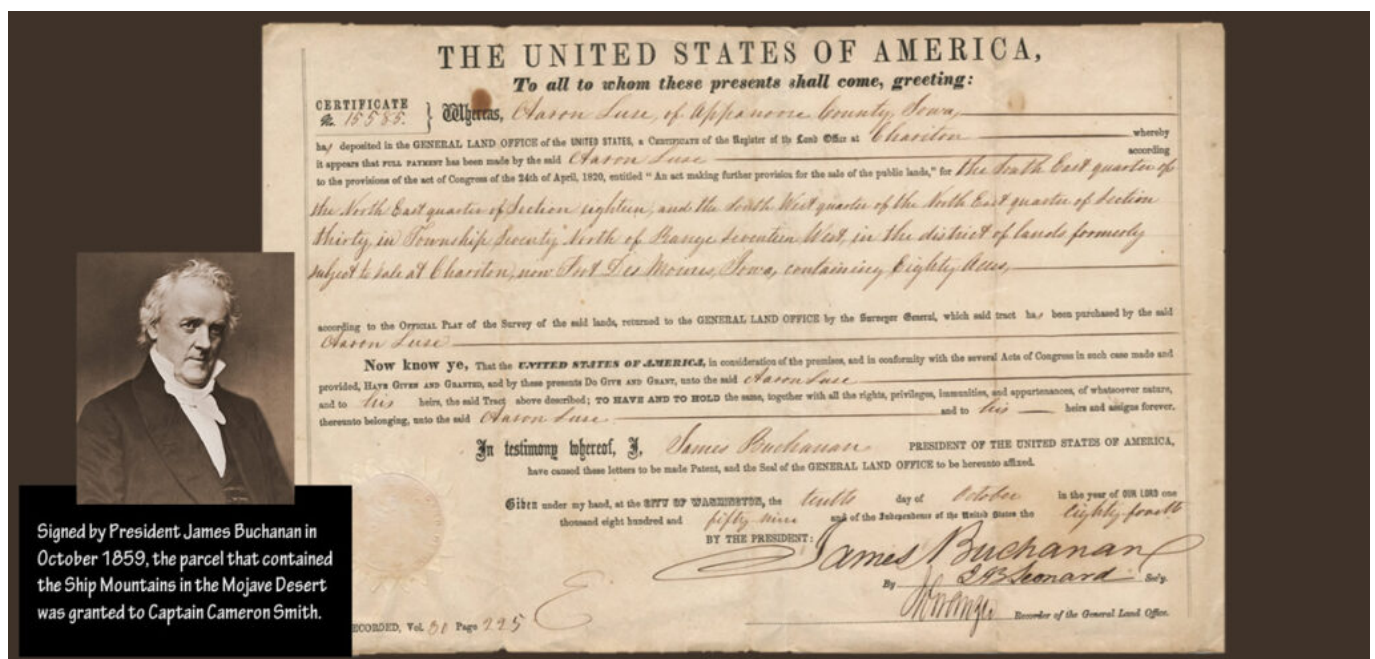 THE UNITED STATES OF AMERICA,
To all to whom these presents shall come, greeting:
CERTIFICATE
No. 15585.
Whereas, Aaron Luse, of Appanoose County, Iowa,
has deposited in the GENERAL LAND OFFICE of the UNITED STATES, a Certificate of the Register of the Land Office at Chariton whereby
it appears that FULL PAYMENT has been made by the said Aaron Luse according
to the provisions of the act of Congress of the 24th of April, 1820, entitled "An act making further provision for the sale of the public lands," for the South East quarter of
the North East quarter of Section eighteen, and the South West quarter of the North East quarter of Section
thirty, in Township Seventy North of Range Seventeen West, in the district of lands formerly
subject to sale at Chariton, now Fort Des Moines, Iowa, containing Eighty Acres,
according to the OFFICIAL PLAT of the Survey of the said lands, returned to the GENERAL LAND OFFICE by the Surveyor General, which said tract has been purchased by the said
Aaron Luse
Now know ye, That the UNITED STATES OF AMERICA, in consideration of the premises, and in conformity with the several Acts of Congress in such case made and
provided, HAVE GIVEN AND GRANTED, and by these presents DO GIVE AND GRANT, unto the said Aaron Luse
and to his heirs, the said Tract above described; TO HAVE AND TO HOLD the same, together with all the rights, privileges, immunities, and appurtenances, of whatsoever nature,
thereunto belonging, unto the said Aaron Luse and to his heirs and assigns forever.
In testimony whereof, I, James Buchanan PRESIDENT OF THE UNITED STATES OF AMERICA,
have caused these letters to be made Patent, and the Seal of the GENERAL LAND OFFICE to be hereunto affixed.
Given under my hand, at the CITY OF WASHINGTON, the tenth day of October in the year of OUR LORD one
thousand eight hundred and fifty nine and of the Independence of the United States the Eighty fourth
BY THE PRESIDENT: James Buchanan
By J.B. Leonard Sec'y.
Recorder of the General Land Office.
RECORDED, Vol. 30 Page 225
Signed by President James Buchanan in
October 1859, the parcel that contained
the Ship Mountains in the Mojave Desert
was granted to Captain Cameron Smith.